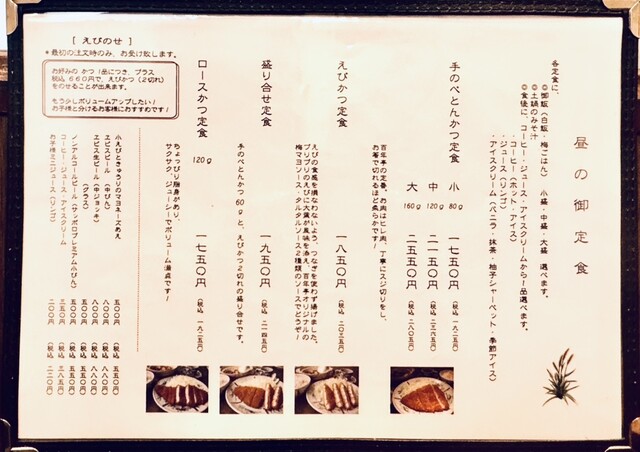 昼の御定食
各定食に、
◎御飯（白飯・梅ごはん）　小盛・中盛・大盛　選べます。
◎土鍋のみそ汁
◎食後に、コーヒー・ジュース・アイスクリームから1品選べます。
・コーヒー（ホット・アイス）
・ジュース（リンゴ）
・アイスクリーム（バニラ・抹茶・柚子シャーベット・季節アイス）
手のべとんかつ定食
小　80g　一七五〇円（税込　一九二五円）
中　120g　二一五〇円（税込　二三六五円）
大　160g　二五五〇円（税込　二八〇五円）
百年亭の定番。お肉はヒレ肉。丁寧にスジ切りをし、
お箸で切れるほど柔らかです！
えびかつ定食　一八五〇円（税込　二〇三五円）
えびの食感を損なわないよう、つなぎを使わず揚げました。
プリプリのえびに大葉が風味を添え、百年亭オリジナルの
梅マヨソースとタルタルソース2種類のソースでどうぞ！
盛り合せ定食　一九五〇円（税込　二一四五円）
手のべとんかつ60gと、えびかつ2切れの盛り合せです。
ロースかつ定食　120g　一七五〇円（税込　一九二五円）
ちょっぴり脂身があり、
サクサク、ジューシーでボリューム満点です！
［えびのせ］
＊最初の注文時のみ、お受け致します。
お好みの かつ 1品につき、プラス
税込 660円で、えびかつ（2切れ）
をのせることが出来ます。
もう少しボリュームアップしたい！
お子様と分けるお客様におすすめです！
小えびときゅうりのマヨネーズあえ　五〇〇円（税込　五五〇円）
ヱビスビール（中びん）　八〇〇円（税込　八八〇円）
ヱビス生ビール（中ジョッキ）　八〇〇円（税込　八八〇円）
（グラス）　五〇〇円（税込　五五〇円）
ノンアルコールビール（サッポロプレミアム小びん）　五〇〇円（税込　五五〇円）
コーヒー・ジュース・アイスクリーム　三五〇円（税込　三八五円）
お子様ミニジュース（リンゴ）　二〇〇円（税込　二二〇円）